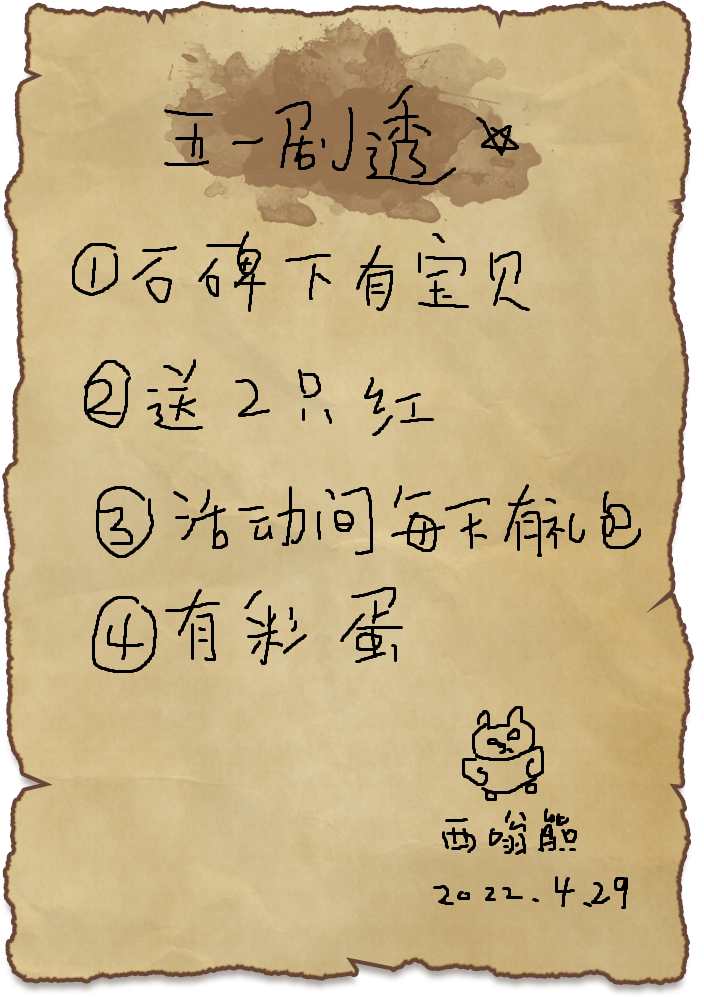 五一剧透☆
①石碑下有宝贝
②送2只红
③活动间每天有礼包
④有彩蛋
西嗡熊
2022.4.29